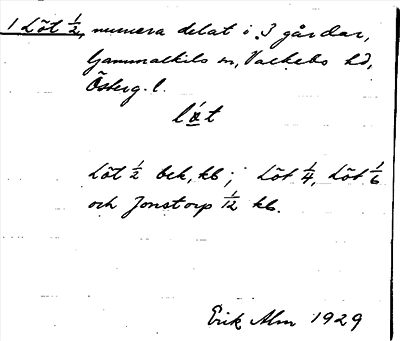 1 Löt ½, numera delat i 3 gårdar,
Gammalkils sn, Valkebo hd,
Österg. l.
lö́t
Löt ½ bek, kb; Löt ¼, Löt ⅙
och Jonstorp 1/12 kb.
Erik Alm 1929